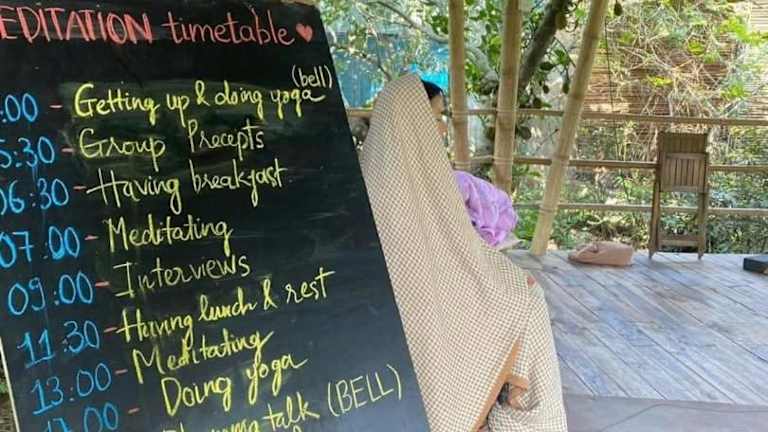 EDITATION timetable
:00 - Getting up & doing yoga (bell)
5:30 - Group Precepts
06:30 - Having breakfast
07:00 - Meditating
09:00 - Interviews
11:30 - Having lunch & rest
13:00 - Meditating
17:00 - Doing yoga
talk (BELL)